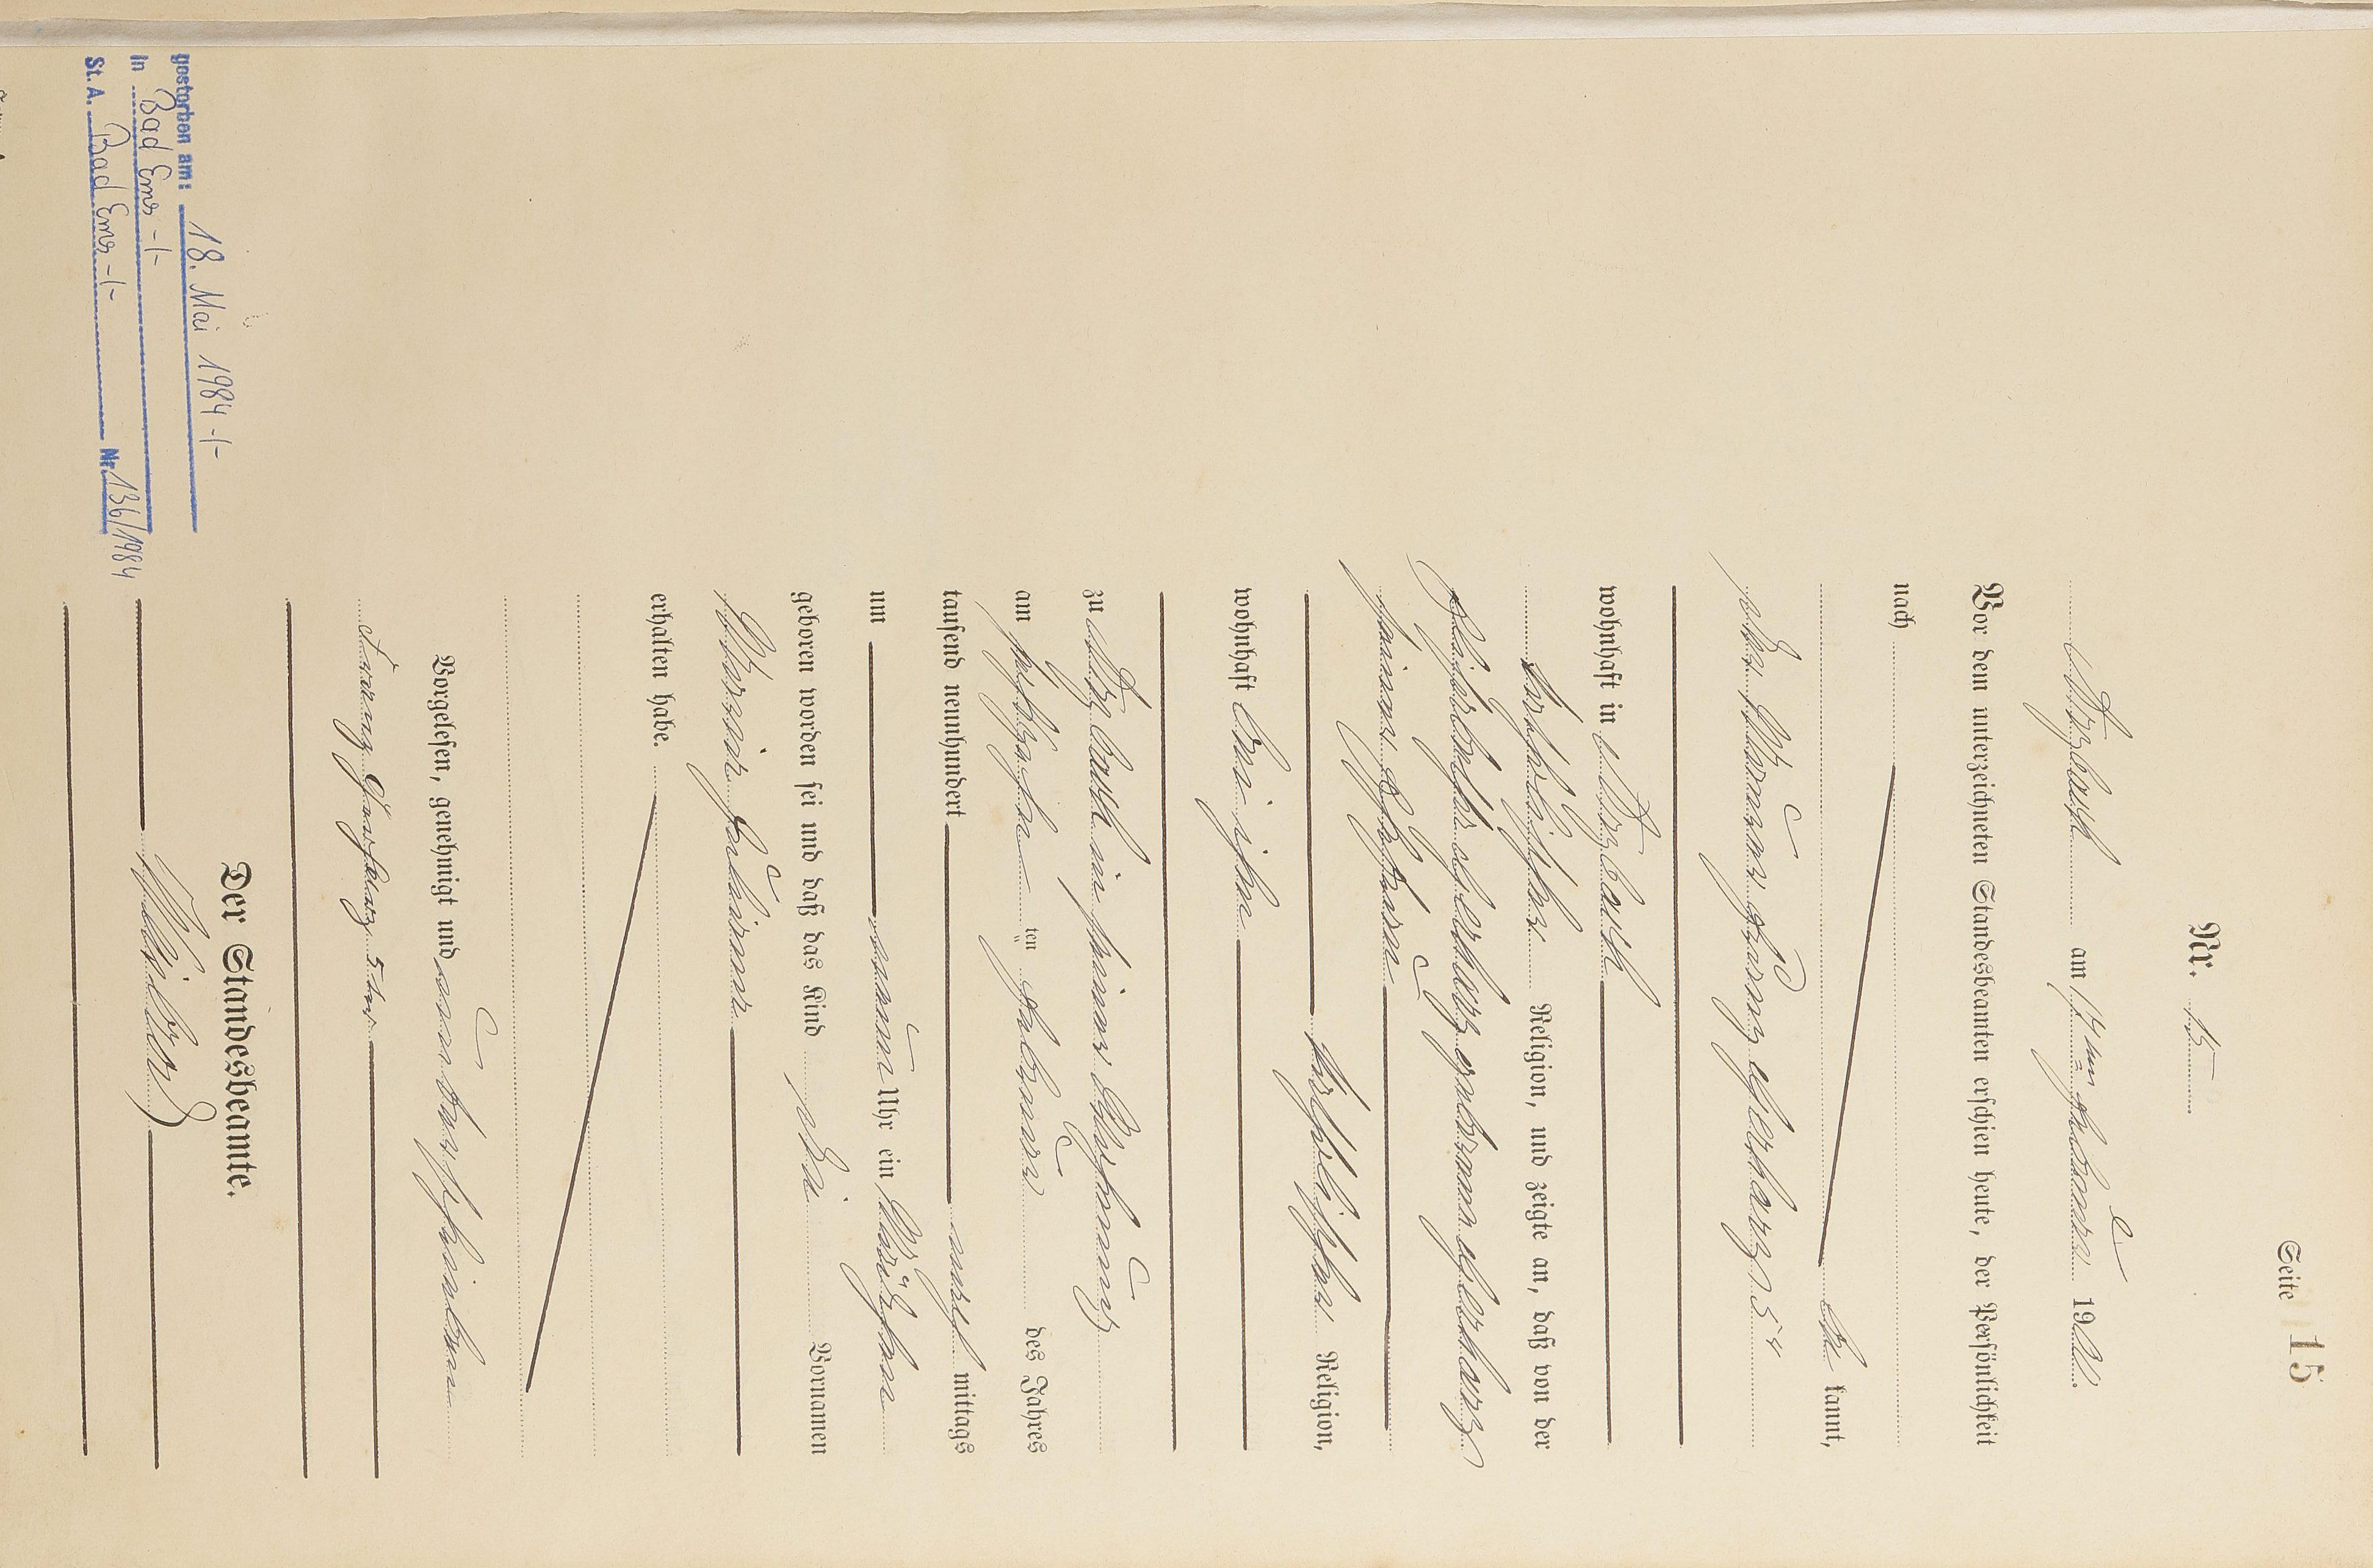 Seite 15
Nr. 15
Arzbach am 17ten Februar 19
Vor dem unterzeichneten Standesbeamten erschien heute, der Persönlichkeit
nach
kannt,
der Maurer Franz
wohnhaft in Arzbach
katholischer Religion, und zeigte an, daß von der
geborene
seiner Ehefrau
katholischer Religion,
wohnhaft bei ihm
zu Arzbach in seiner Wohnung
am sechszehnten Februar des Jahres
tausend neunhundert nach mittags
um neun Uhr ein Mädchen
geboren worden sei und daß das Kind die Vornamen
Maria
erhalten habe.
Vorgelesen, genehmigt und unterschrieben
Franz
Der Standesbeamte.
gestorben am: 18. Mai 1984 -/-
in Bad Ems -/-
St. A. Bad Ems -/- Nr. 136/1984